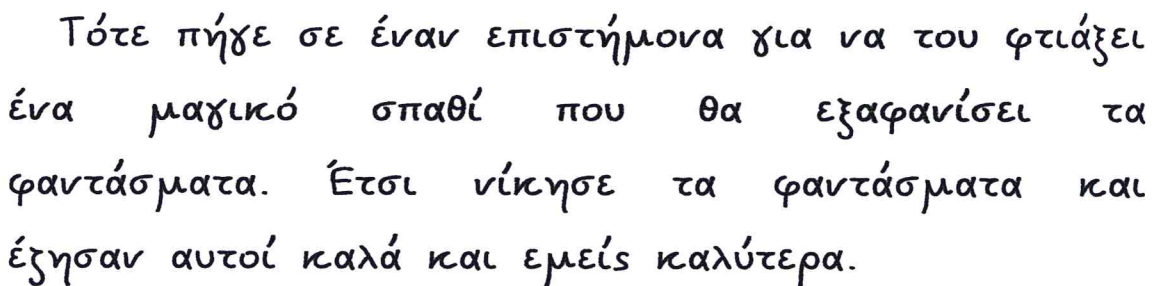 Τότε πήγε σε έναν επιστήμονα για να του φτιάξει
ένα μαγικό σπαθί που θα εξαφανίσει τα
φαντάσματα. Έτσι νίκησε τα φαντάσματα και
έζησαν αυτοί καλά και εμείς καλύτερα.